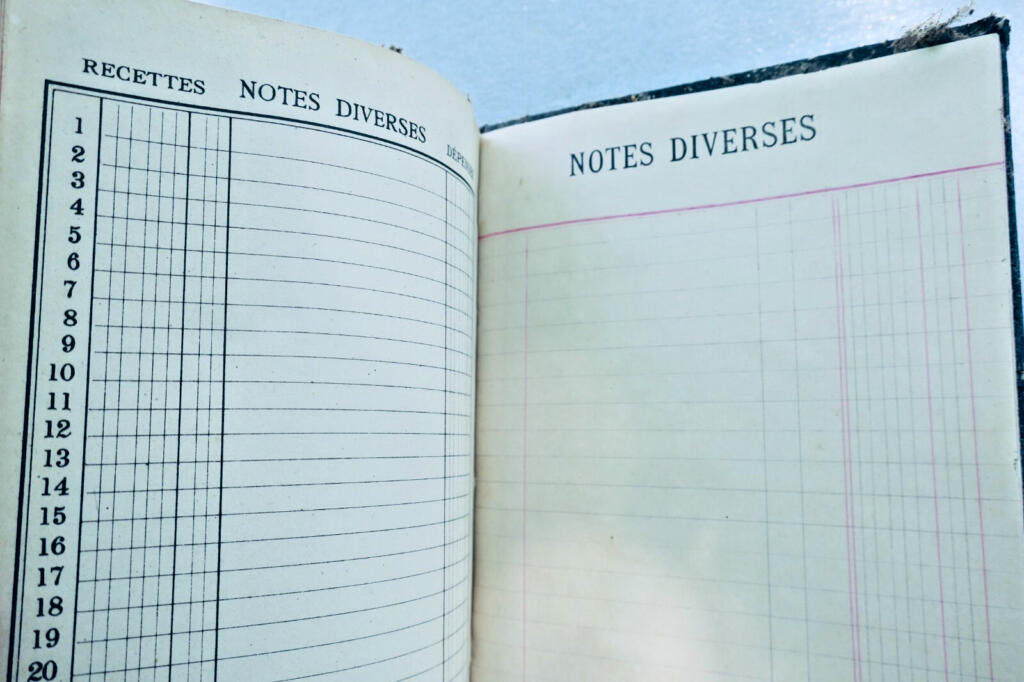 RECETTES NOTES DIVERSES
1
2
3
4
5
6
7
8
9
10
11
12
13
14
15
16
17
18
19
20
NOTES DIVERSES